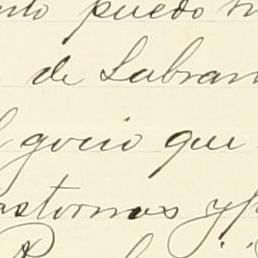 puedo
de Labran
gocio que
astornos y p